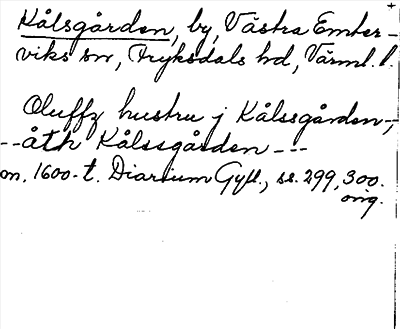 Kålsgården, by, Västra Emter-
viks sn, Fryksdals hd, Värml. l.
Oluffz hustru j Kålssgården -,-
--åth Kålssgården ---
m. 1600-t. Diarium Gyll., ss. 299, 300.
orig.